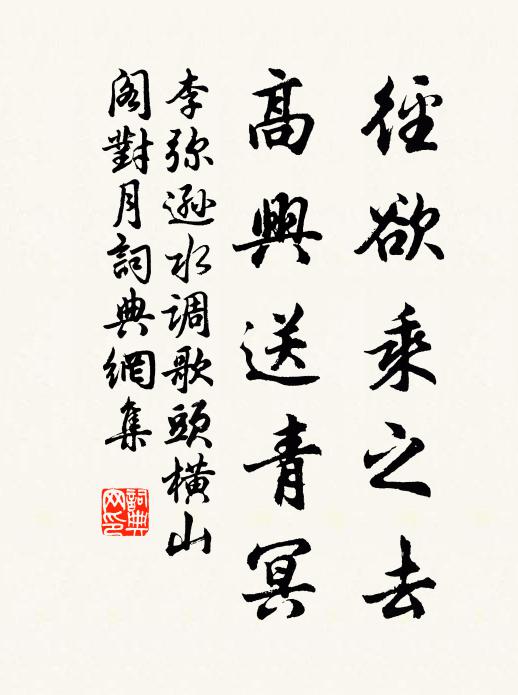 徑欲乘之去
高興送青冥
李弥遜水调歌頭橫山
阁對月詞典網集
詞典网印